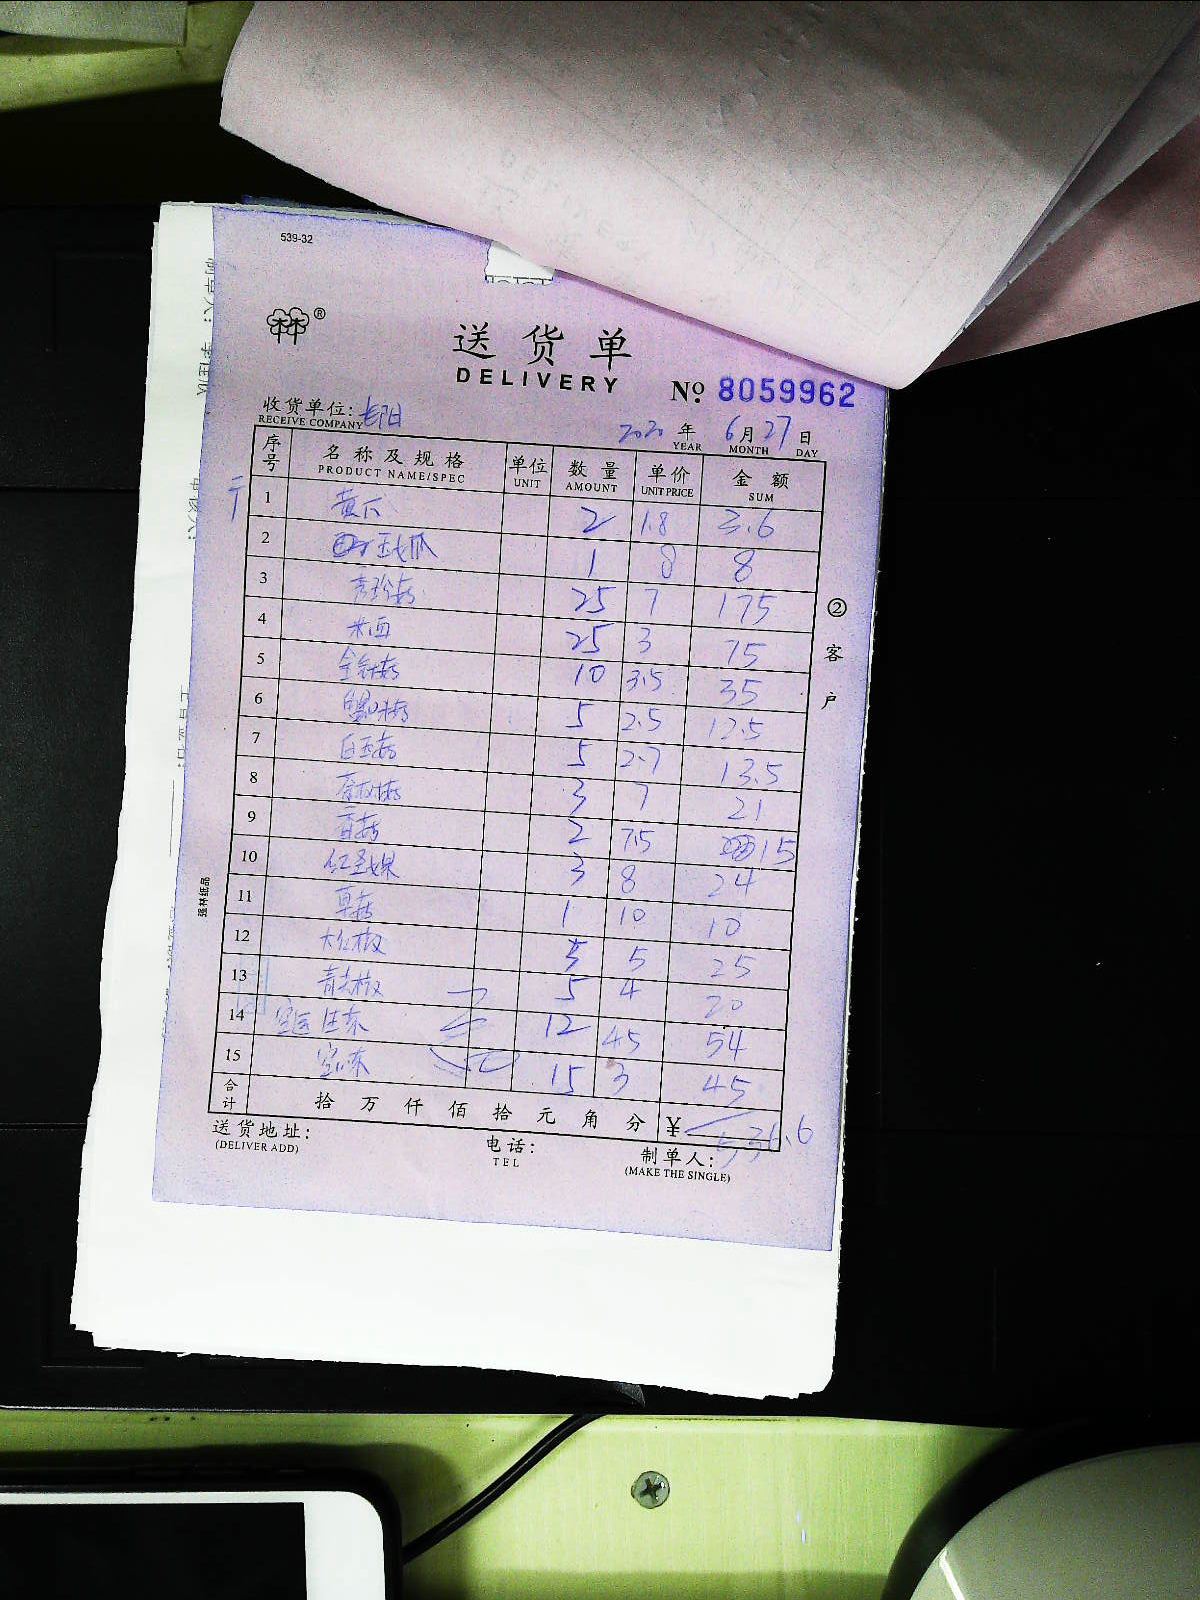 539-32
®
送货单
DELIVERY
№ 8059962
收货单位:
RECEIVE COMPANY
2020 年 6 月 27 日
YEAR MONTH DAY
序号 名称及规格 单位 数量 单价 金额
PRODUCT NAME/SPEC UNIT AMOUNT UNIT PRICE SUM
1 黄瓜 2 1.8 3.6
2 1 8 8
3 秀珍菇 25 7 175
4 米面 25 3 75
5 金针菇 10 3.5 35
6 5 2.5 12.5
7 白玉菇 5 2.7 13.5
8 3 7 21
9 香菇 2 7.5 15
10 3 8 24
11 草菇 1 10 10
12 大红椒 5 5 25
13 青尖椒 5 4 20
14 12 45 54
15 15 3 45
合计 拾 万 仟 佰 拾 元 角 分 ¥ 536.6
送货地址:
(DELIVER ADD)
电话:
TEL
制单人:
(MAKE THE SINGLE)
②客户
强林纸品